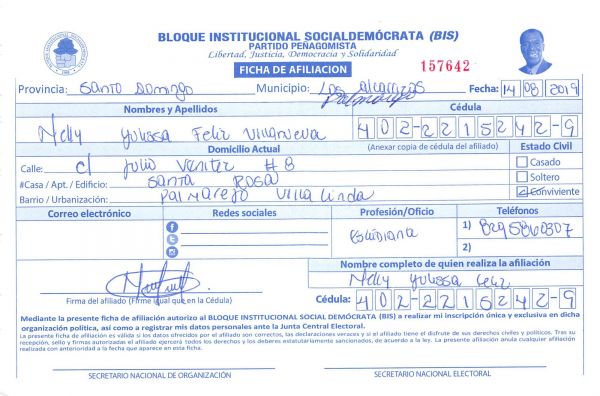 BLOQUE INSTITUCIONAL SOCIALDEMÓCRATA (BIS)
PARTIDO PEÑAGOMISTA
Libertad, Justicia, Democracia y Solidaridad
FICHA DE AFILIACION
157642
Provincia: Santo Domingo Municipio: Los Alcarrizos Fecha: 14/08/2019
Palmarejo
Nombres y Apellidos Cédula
Nelly Yulissa Feliz Villanueva 402-2215242-9
Domicilio Actual (Anexar copia de cédula del afiliado) Estado Civil
Calle: c/ Julio #8 Casado
#Casa / Apt. / Edificio: Santa Rosa Soltero
Barrio / Urbanización: Palmarejo Villa Linda Conviviente
Correo electrónico Redes sociales Profesión/Oficio Teléfonos
Estudiana 1) 8295860307
2)
Nombre completo de quien realiza la afiliación
Nelly Yulissa Feliz
Firma del afiliado (Firme igual que en la Cédula) Cédula: 402-2215242-9
Mediante la presente ficha de afiliación autorizo al BLOQUE INSTITUCIONAL SOCIAL DEMÓCRATA (BIS) a realizar mi inscripción única y exclusiva en dicha
organización política, así como a registrar mis datos personales ante la Junta Central Electoral.
La presente ficha de afiliación es válida si los datos ofrecidos por el afiliado son correctos, las declaraciones veraces y si el afiliado tiene el disfrute de sus derechos civiles y políticos. Tras su
recepción, sello y firmas autorizadas el afiliado ejercerá todos los derechos y los deberes estatutariamente sancionados, de acuerdo a la ley. La presente afiliación anula cualquier afiliación
realizada con anterioridad a la fecha que aparece en esta ficha.
SECRETARIO NACIONAL DE ORGANIZACIÓN SECRETARIO NACIONAL ELECTORAL